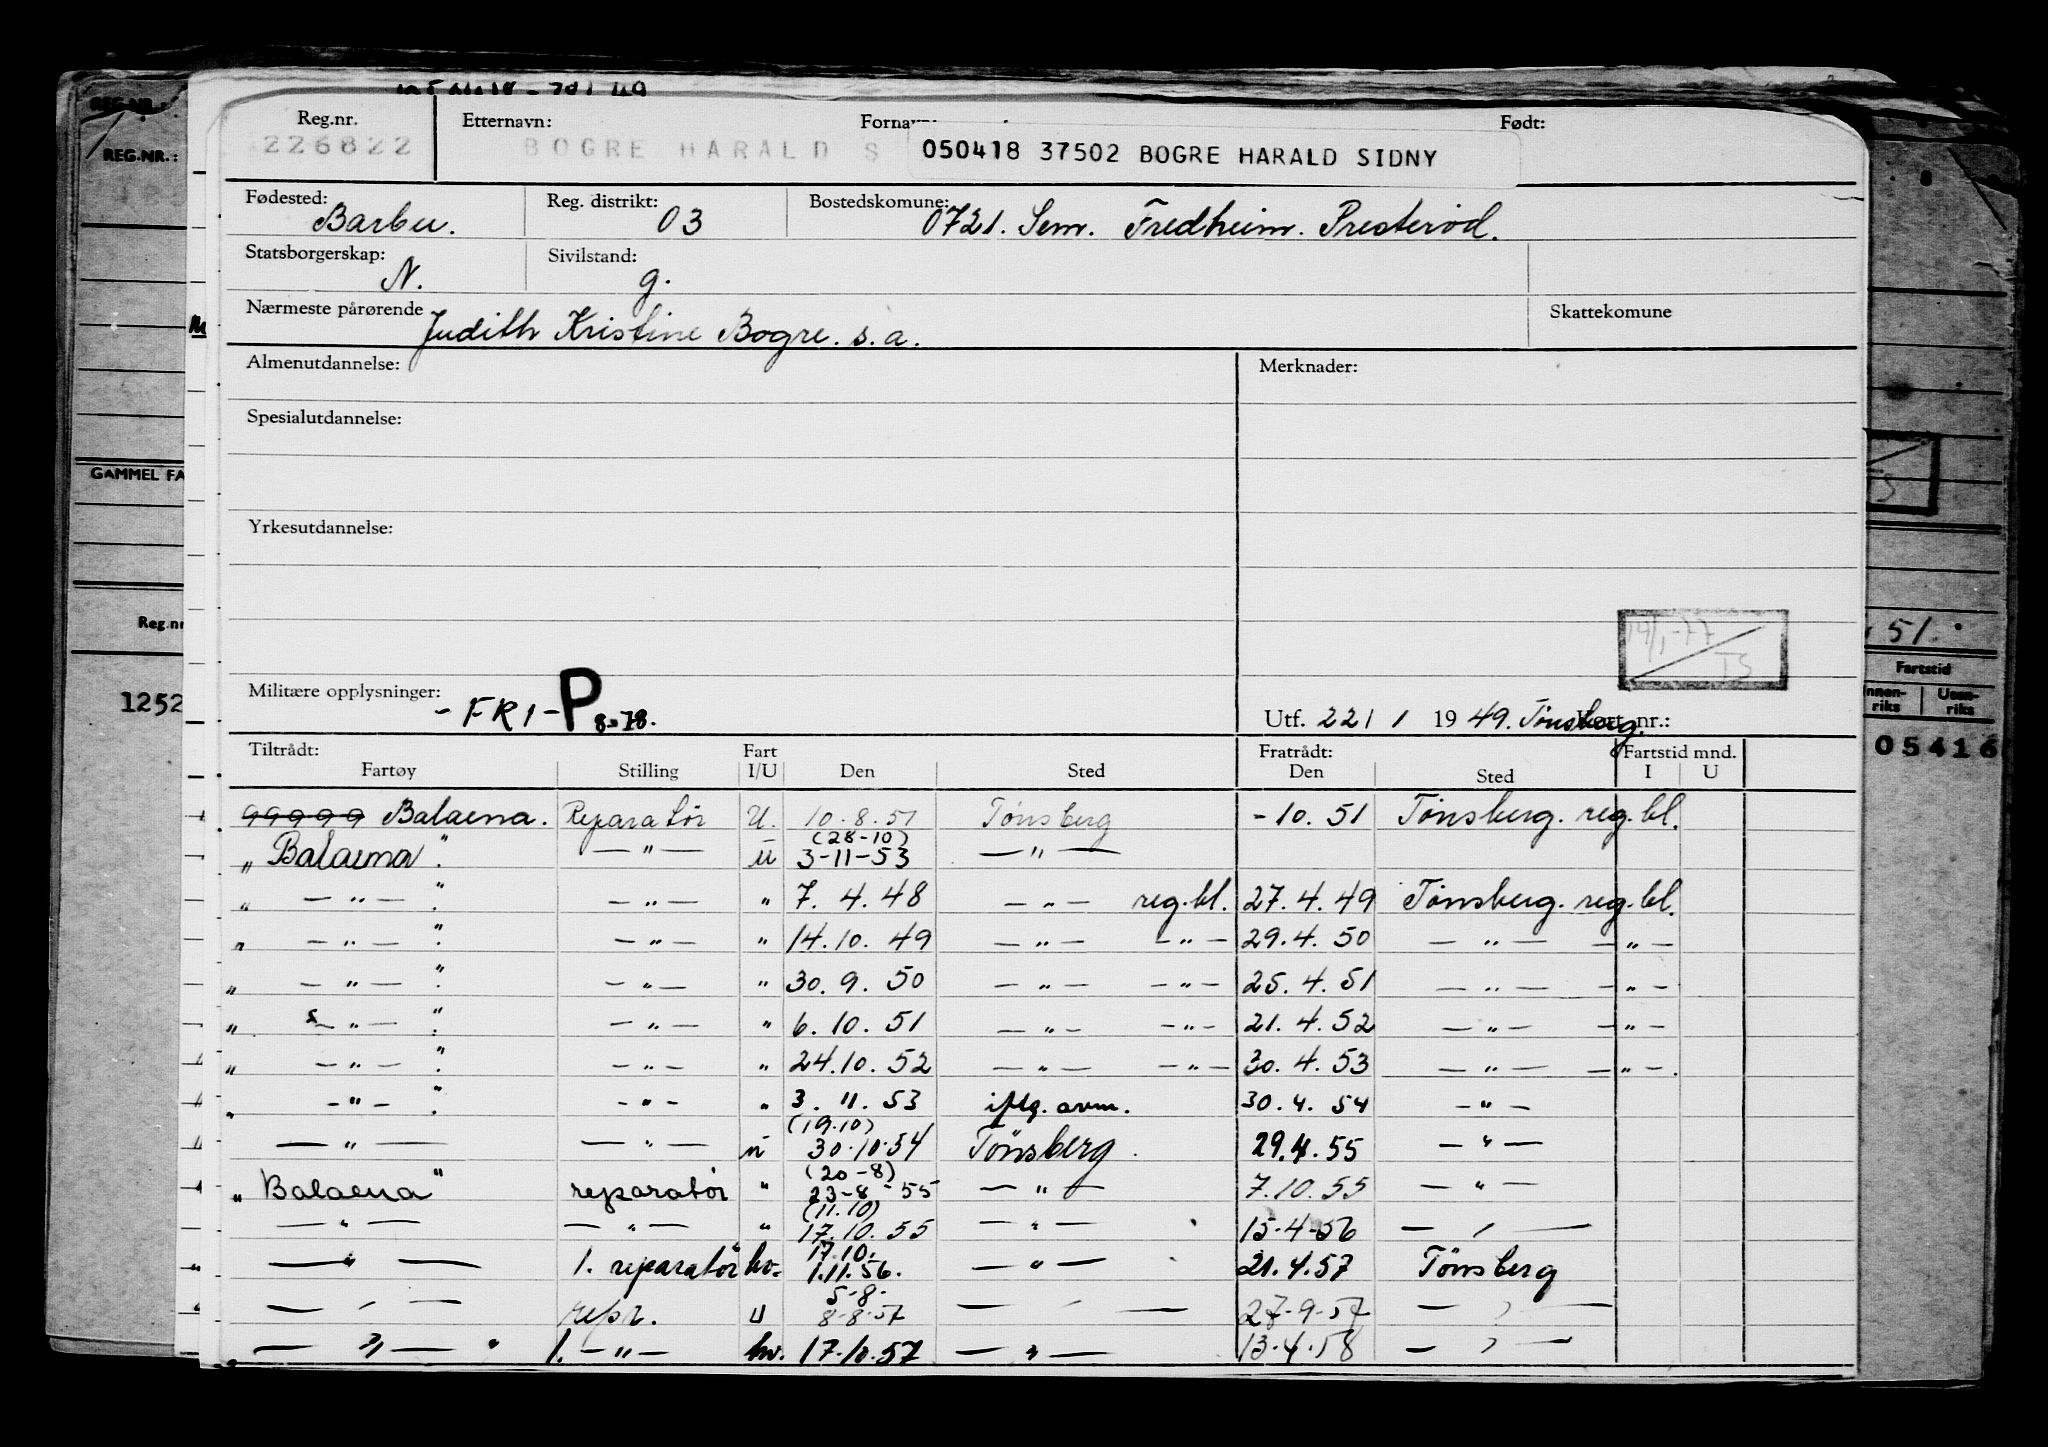 REG.NR.:
REG.NR.:
GAMMEL FA
Reg.nr
1252
Reg.nr. Etternavn: Fornavn: Født:
226822 BOGRE HARALD S 050418 37502 BOGRE HARALD SIDNY
Fødested: Barbu. Reg. distrikt: 03 Bostedskomune: 0721. Sem. Fredheim. Presterød.
Statsborgerskap: N. Sivilstand: g.
Nærmeste pårørende Judith Kristine Bogre. s.a. Skattekomune
Almenutdannelse: Merknader:
Spesialutdannelse:
Yrkesutdannelse:
14/1-77
TS
Militære opplysninger: - FRI - P 8-78. Utf. 22/1 1949. Tønsberg. Kort nr.:
Tiltrådt: Fart Fratrådt: Fartstid mnd.
Fartøy Stilling I/U Den Sted Den Sted I U
99999 Balaena. Reparatør U. 10.8.51 Tønsberg -10.51 Tønsberg. reg.bl.
(28-10)
" Balaena". — " — U 3-11-53 — " —
" — " — ". — " — " 7.4.48 — " — reg.bl. 27.4.49 Tønsberg. reg.bl.
" — " — ". — " — " 14.10.49 — " — — " — 29.4.50 — " — — " —
" — " — ". — " — " 30.9.50 — " — — " — 25.4.51 — " — — " —
" — " — ". — " — " 6.10.51 — " — — " — 21.4.52 — " — — " —
" — " — ". — " — " 24.10.52 — " — — " — 30.4.53 — " — — " —.
" — " — ". — " — " 3.11.53 iflg. avm. 30.4.54 — " —
(19.10)
— " — — " — u 30.10.54 Tønsberg. 29.4.55 — " —
(20-8)
" Balaena" reparatør " 23-8-55 — " — 7.10.55 — " —
(11.10)
— " — — " — " 17.10.55 — " — 15-4-56 — " —
17.10.
" — " — 1. reparatør hv. 1.11.56. — " — 21.4.57 Tønsberg
5-8.
" — " — repr. U 8-8-57 — " — 27-9-57 — " —
— " — " 1. — " — hv. 17.10.57 — " — 13.4.58 — " —
51.
Fartstid
Innen-
riks
Uten-
riks
05416